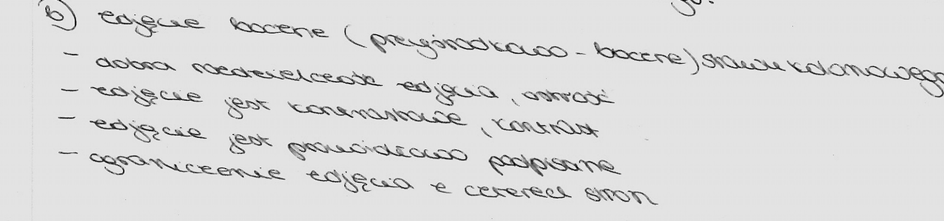 b) zdjęcie boczne (przyśrodkowo - boczne) stawu kolanowego
- dobra rozdzielczość zdjęcia, ostrość
- zdjęcie jest kontrastowe, kontrast
- zdjęcie jest prawidłowo podpisane
- ograniczenie zdjęcia z czterech stron